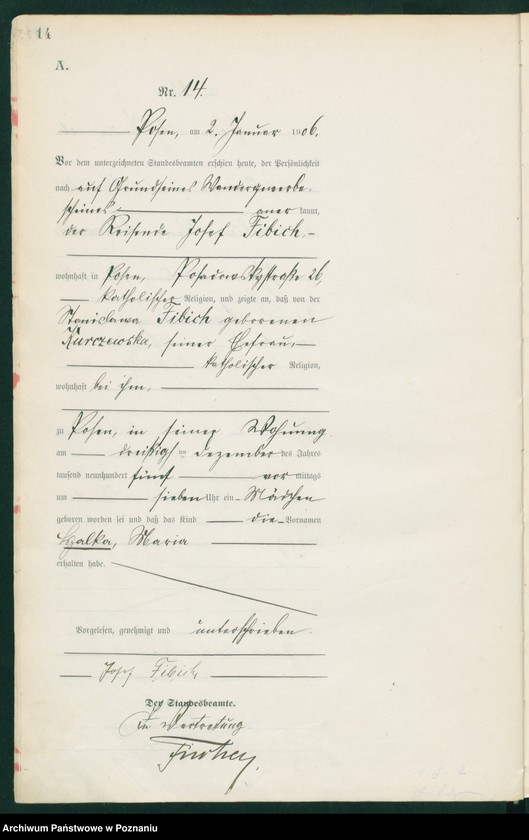 14
A.
Nr. 14.
Posen, am 2. Januar 1906.
Vor dem unterzeichneten Standesbeamten erschien heute, der Persönlichkeit
nach auf Grund seines Wandergewerbe-
scheines anerkannt,
der Reisende Josef Fibich,
wohnhaft in Posen, Posadowskystraße 26,
katholischer Religion, und zeigte an, daß von der
Stanislawa Fibich geborenen
Kurczewska, seiner Ehefrau,
katholischer Religion,
wohnhaft bei ihm,
zu Posen, in seiner Wohnung
am dreißigsten Dezember des Jahres
tausend neunhundert fünf vormittags
um sieben Uhr ein Mädchen
geboren worden sei und daß das Kind die Vornamen
Maria
erhalten habe.
Vorgelesen, genehmigt und unterschrieben.
Josef Fibich
Der Standesbeamte.
In Vertretung
Archiwum Państwowe w Poznaniu